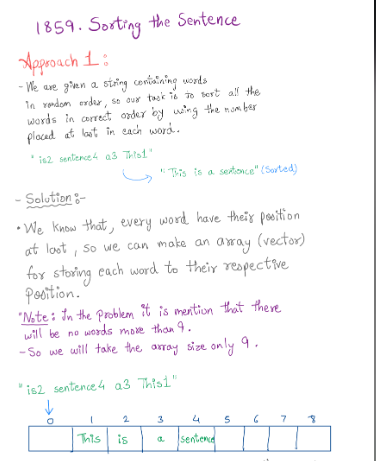 1859. Sorting the Sentence
Approach 1 :
- We are given a string containing words
in random order, so our task is to sort all the
words in correct order by using the number
placed at last in each word.
" is2 sentence4 a3 This1"
" This is a sentence" (Sorted)
- Solution :-
• We know that, every word have their position
at last, so we can make an array (vector)
for storing each word to their respective
position.
*Note : In the problem it is mention that there
will be no words more than 9.
- So we will take the array size only 9.
" is2 sentence4 a3 This1"
0 1 2 3 4 5 6 7 8
This is a sentence